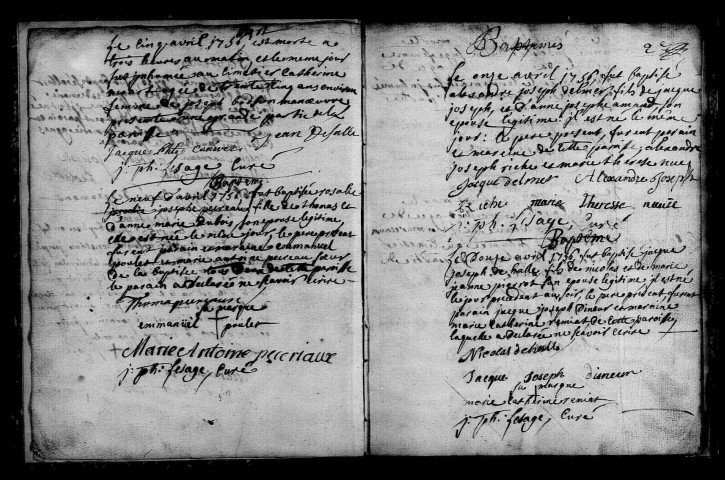 mort
Le cinq avril 1756, est morte a
trois heures au matin, et le meme jour
fut inhumée au cimetier catherine
agée de trente cinq ans environ
femme de joseph manœuvre
presente une grande partie de la
paroisse jean Deballe
jacque canivez
j: ph: Lesage, Curé
Baptem
Le neuf d'avril 1756, fut baptisée rosalie
josephe pureau, fille de thomas et
d'anne marie dubois, son epouse legitime,
elle est née le meme jour, le pere present
furent parain et maraine emmanuel
poulet et marie antoine pureau sœur
de la baptisée tous deux de cette paroisse
le parain a declaré ne scavoir ecrire
Thoma
sa marque
emmanuel + poulet
+ Marie Antoine
j: ph: Lesage, Curé
Baptemes 2
Le onze avril 1756, fut baptisé
alexandre joseph delmer, fils de jacque
joseph, et d'anne josephe amand, son
epouse legitime; il est né le meme
jour: le pere present, furent parain
et marcine de cette paroisse, alexandre
joseph riche et marie therese
Jacque delmer Alexandre Joseph
Riche marie Theresse
j: ph: Lesage, Curé
Baptême
le Douze avril 1756 fut baptisé jacque
joseph de halle, fils de nicolas et de marie
jeanne pierrot son epouse legitime il est né
le jour precedent au soir, le pere present, furent
parain jacque joseph Dineur et maraine
marie catharine remiat de cette paroisse,
laquelle a declaré ne scavoir ecrire
Nicolas dehalle
Jacque Joseph dineur
sa marque
marie + catherine remiat
j: ph: Lesage, Curé